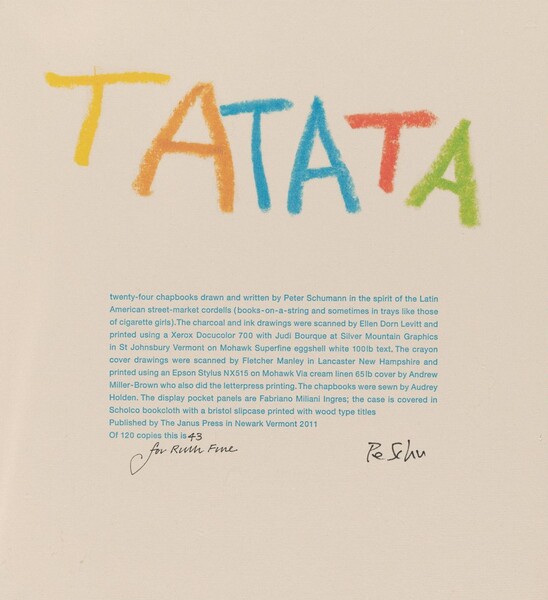 TATATA
twenty-four chapbooks drawn and written by Peter Schumann in the spirit of the Latin
American street-market cordells (books-on-a-string and sometimes in trays like those
of cigarette girls).The charcoal and ink drawings were scanned by Ellen Dorn Levitt and
printed using a Xerox Docucolor 700 with Judi Bourque at Silver Mountain Graphics
in St Johnsbury Vermont on Mohawk Superfine eggshell white 100lb text. The crayon
cover drawings were scanned by Fletcher Manley in Lancaster New Hampshire and
printed using an Epson Stylus NX515 on Mohawk Via cream linen 65lb cover by Andrew
Miller-Brown who also did the letterpress printing. The chapbooks were sewn by Audrey
Holden. The display pocket panels are Fabriano Miliani Ingres; the case is covered in
Scholco bookcloth with a bristol slipcase printed with wood type titles
Published by The Janus Press in Newark Vermont 2011
Of 120 copies this is 43
for Ruth Fine
Pe Schu